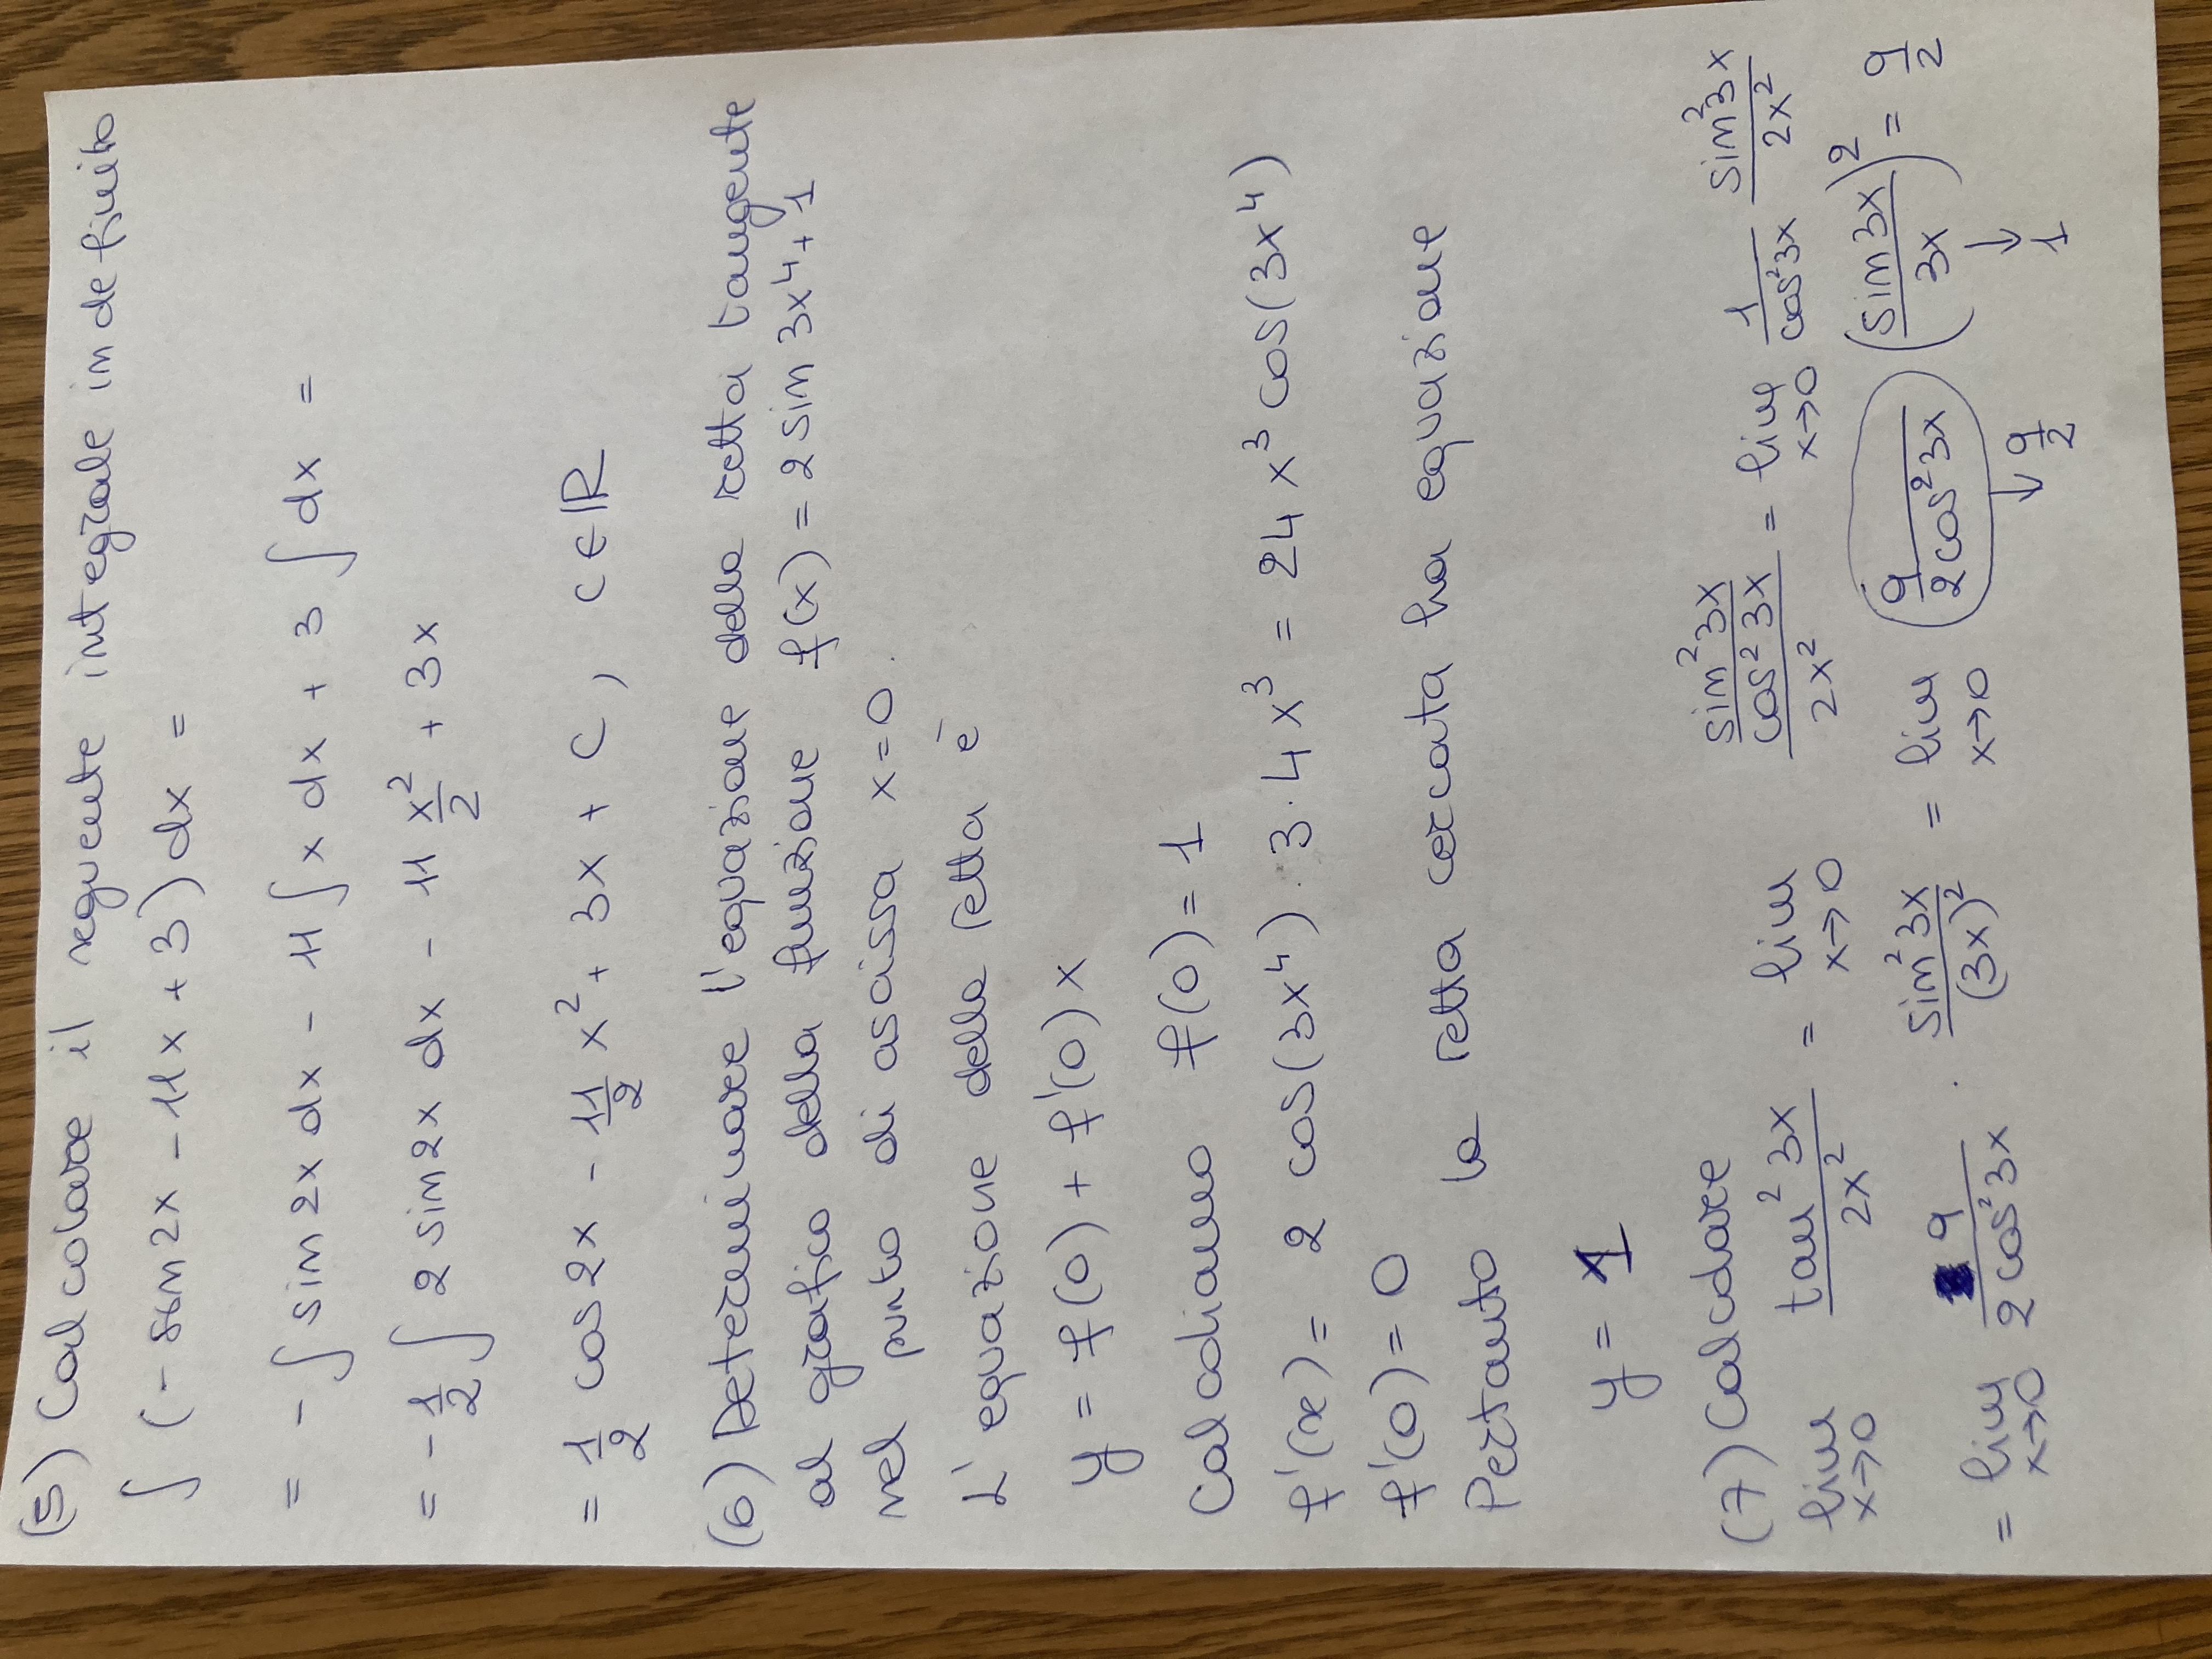 (5) Calcolare il seguente integrale indefinito
∫ (- sen 2x - 11x + 3) dx =
= - ∫ sin 2x dx - 11 ∫ x dx + 3 ∫ dx =
= - 1/2 ∫ 2 sin 2x dx - 11 x²/2 + 3x
= 1/2 cos 2x - 11/2 x² + 3x + C, C ∈ ℝ
(6) Determinare l'equazione della retta tangente
al grafico della funzione f(x) = 2 sin 3x⁴ + 1
nel punto di ascissa x = 0.
L'equazione della retta è
y = f(0) + f'(0) x
Calcoliamo f(0) = 1
f'(x) = 2 cos(3x⁴) · 3 · 4x³ = 24 x³ cos(3x⁴)
f'(0) = 0
Pertanto la retta cercata ha equazione
y = 1
(7) Calcolare
lim x→0 tan² 3x / 2x² = lim x→0 (sin² 3x / cos² 3x) / 2x² = lim x→0 1 / cos² 3x sin² 3x / 2x²
= lim x→0 9 / 2 cos² 3x · sin² 3x / (3x)² = lim x→0 9 / 2 cos² 3x (sin 3x / 3x)² = 9/2
↓ 9/2 ↓ 1